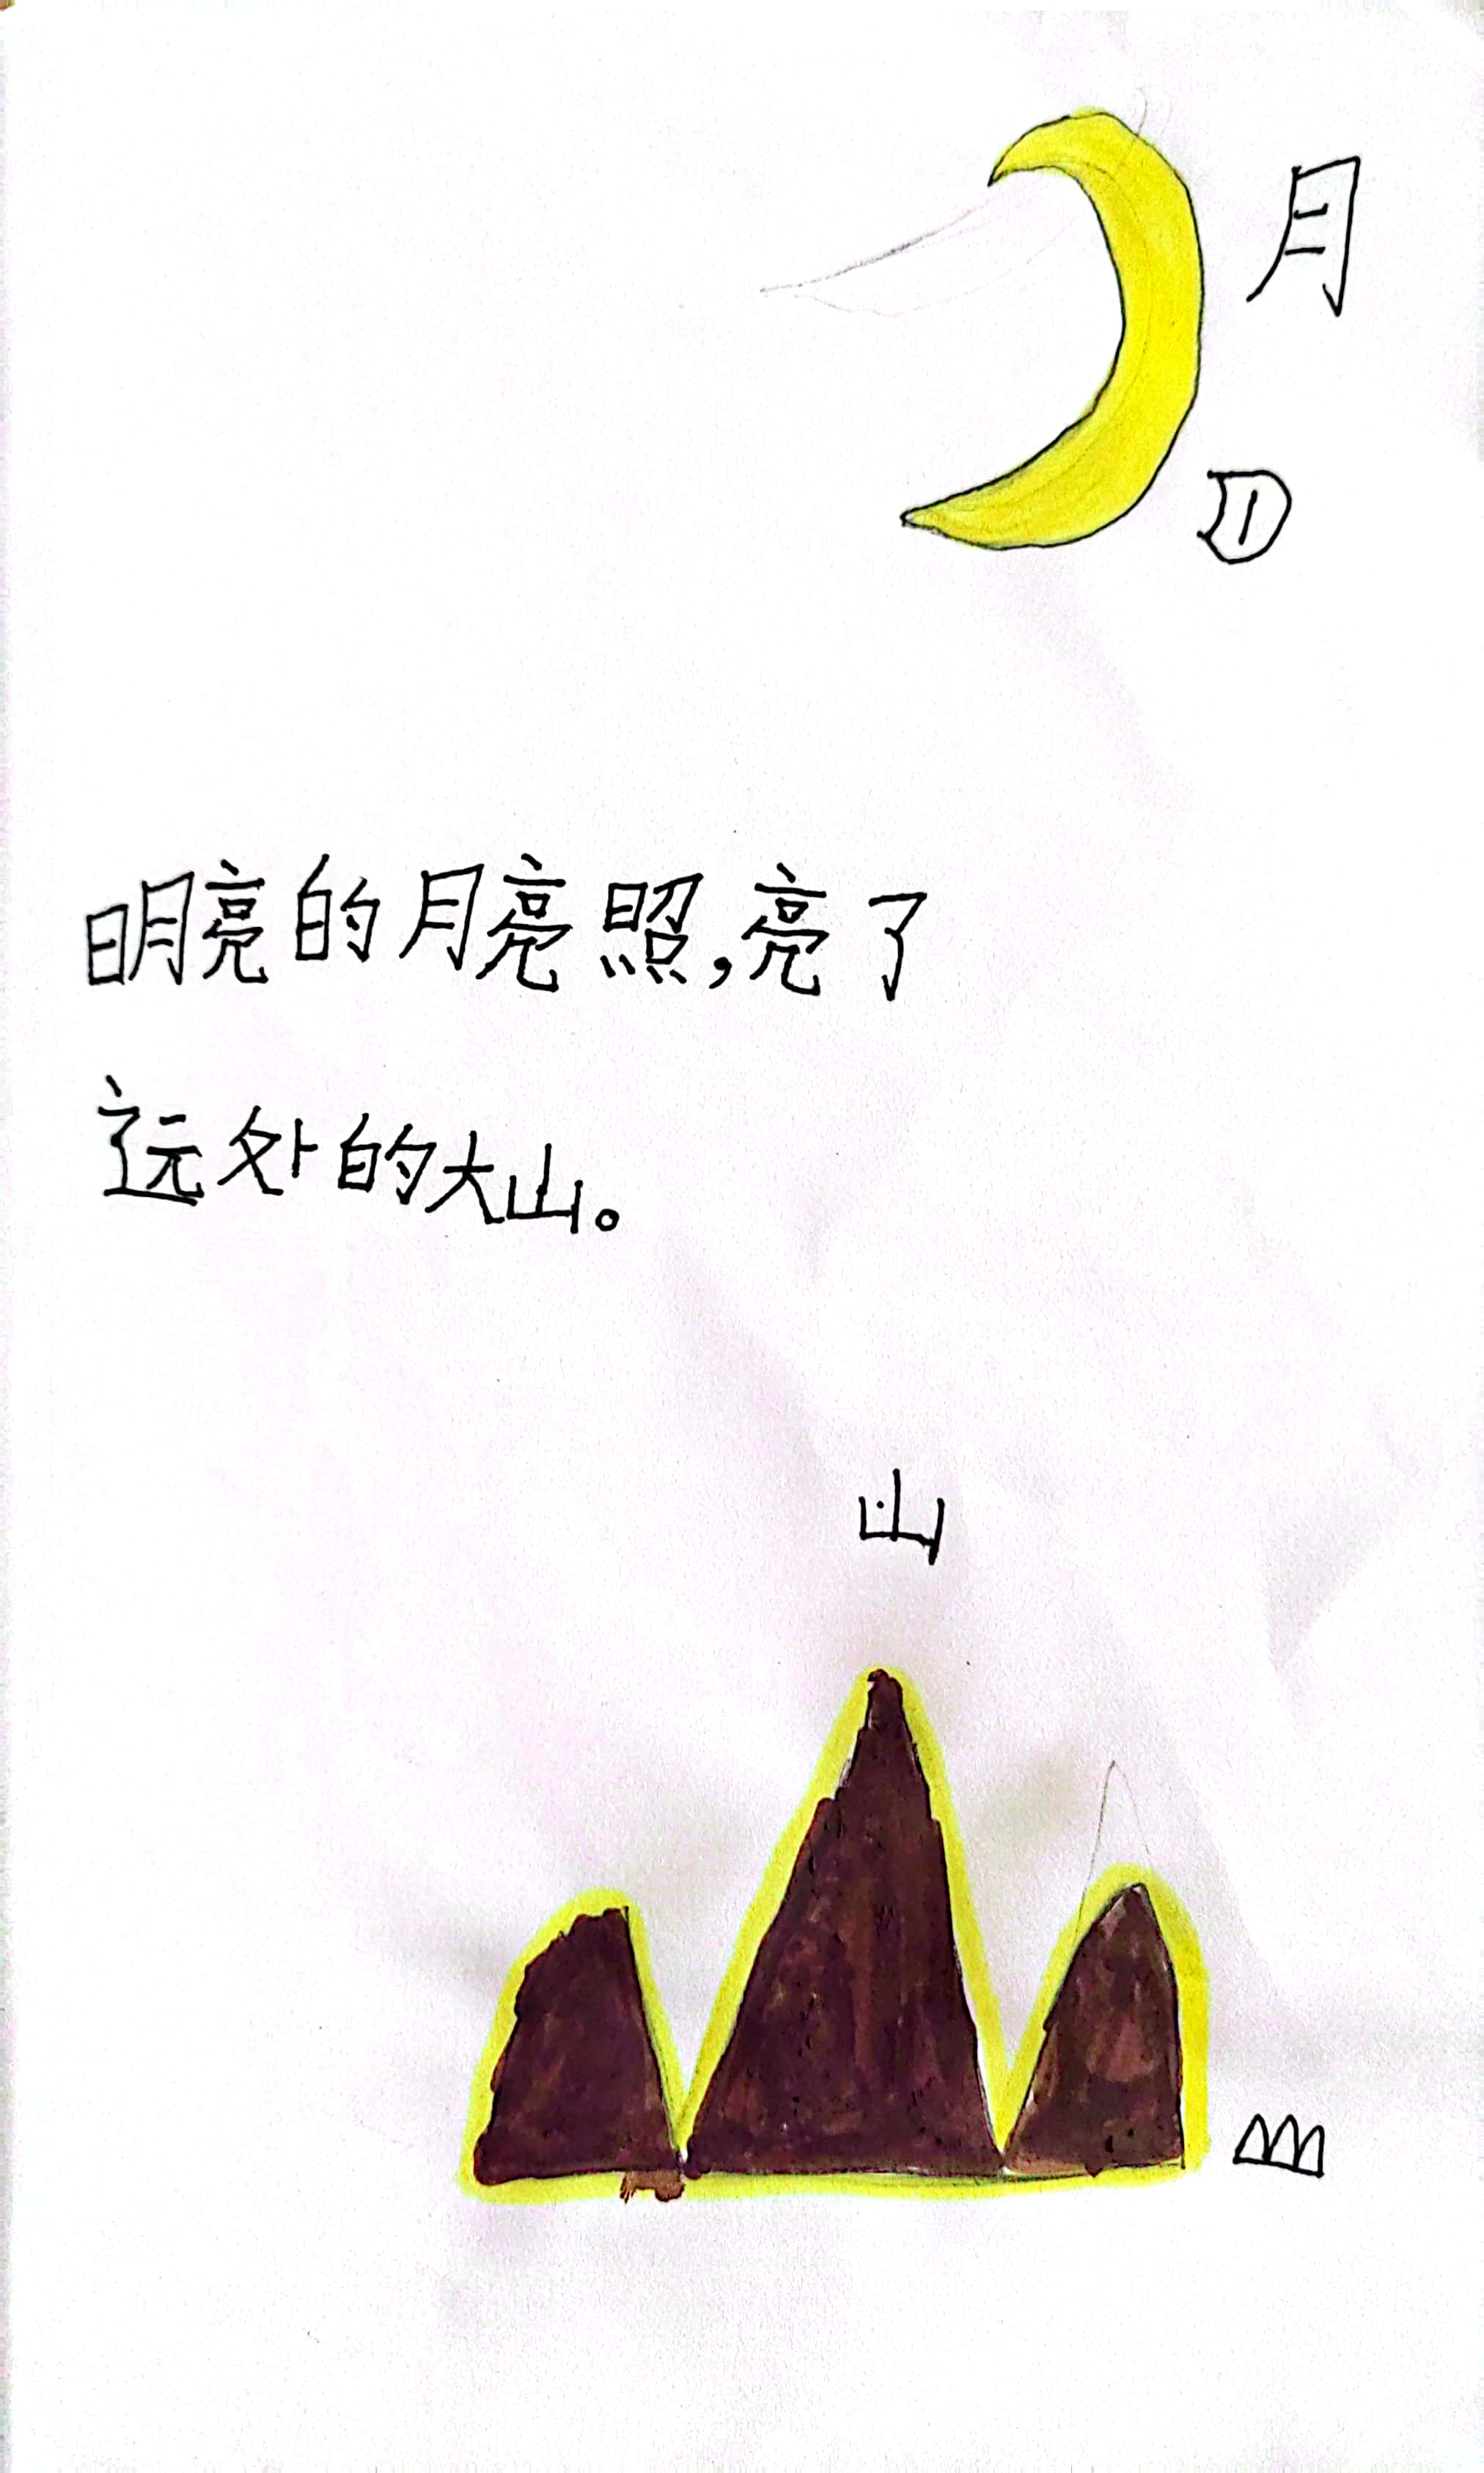 月
明亮的月亮照,亮了
远处的大山。
山